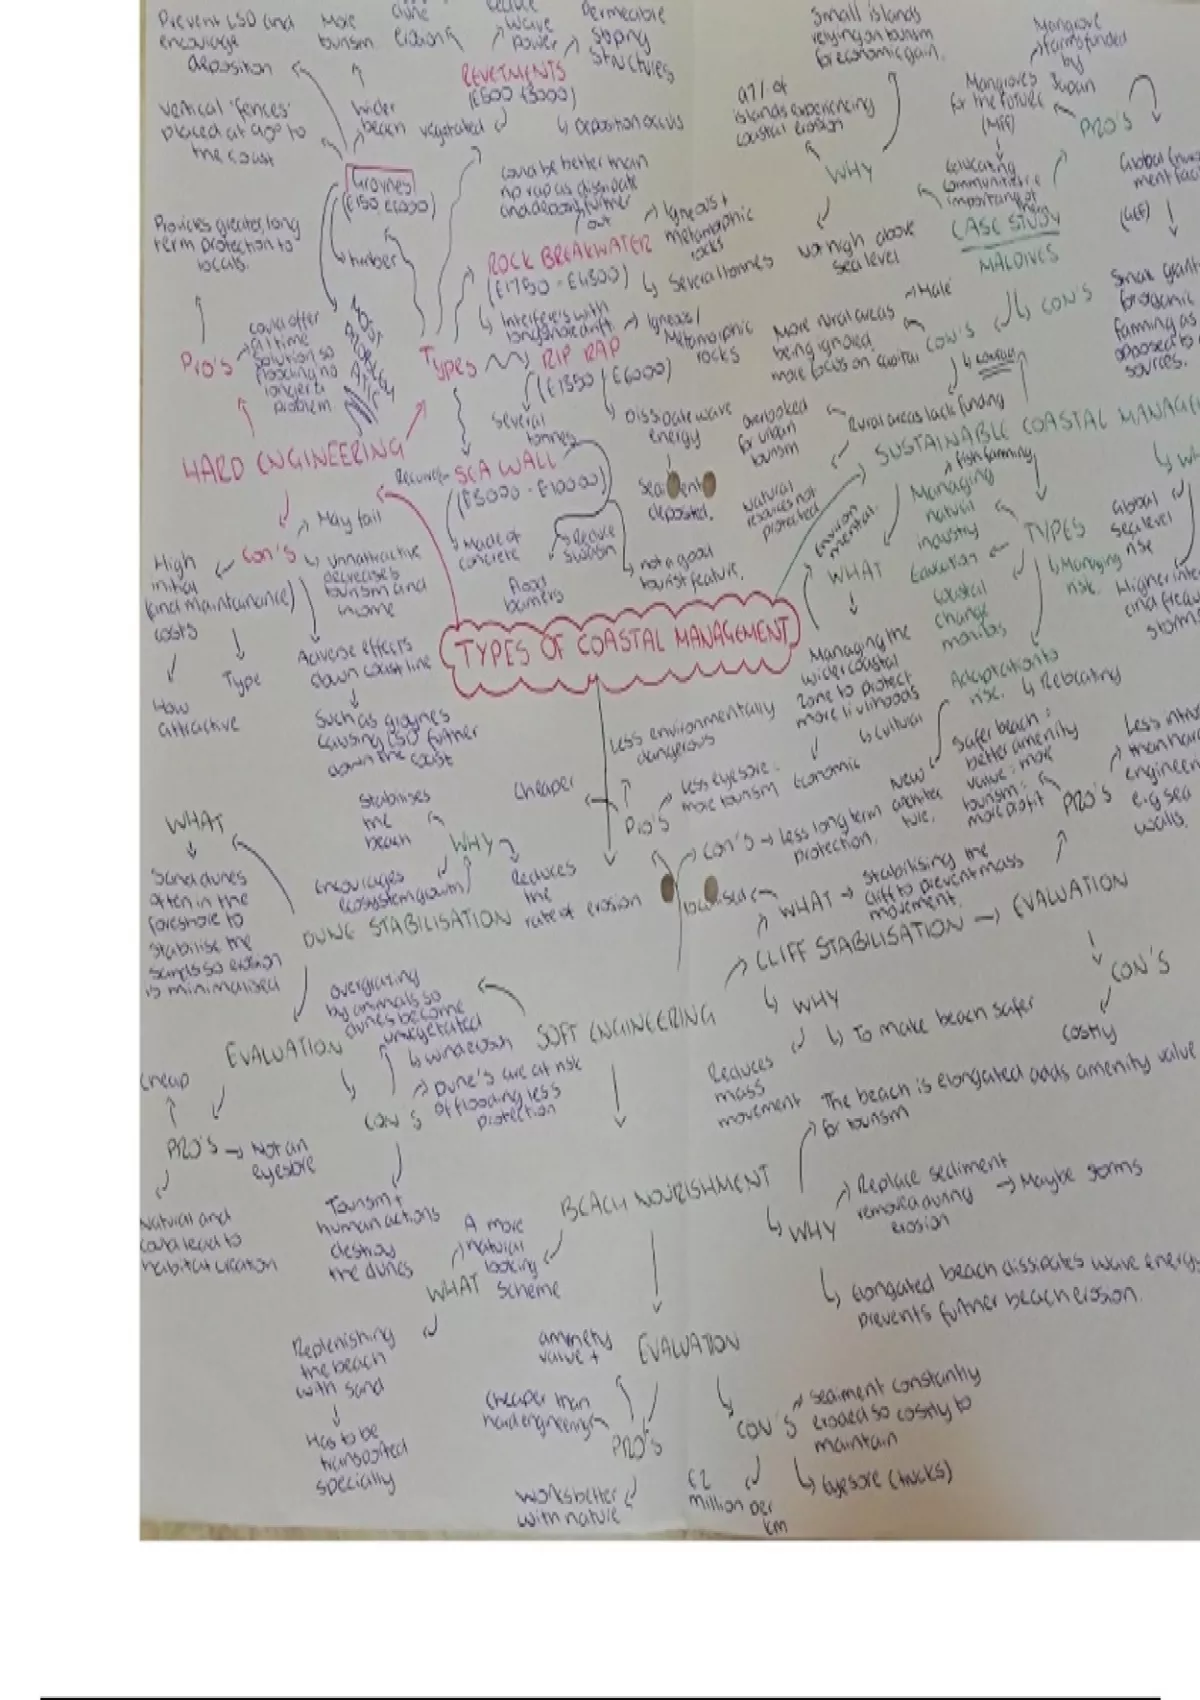 Prevent LSD and
encourage
deposition
More
tourism
erosion
reduce
wave
power
Permeable
sloping
structures
REVETMENTS
vegetated
↳ Deposition occurs
vertical 'fences'
placed at 90° to
the coast
Wider
beach
Groynes
↳ timber
Provides greater, long
term protection to
locals.
Pro's
could offer
a long time
solution so
flooding no
longer a
problem
HARD ENGINEERING
Types
could be better than
rip rap as dissipate
and deposit further
out
ROCK BREAKWATER
(£1750 - £4300)
Igneous +
metamorphic
rocks
↳ Several tonnes
↳ Interferes with
longshore drift
RIP RAP
(£1350 / £6000)
Igneous /
Metamorphic
rocks
Several
tonnes
↳ Dissipate wave
energy
Sediment
deposited.
SEA WALL
(£5000 - £10000)
↳ Made of
concrete
Reduce
erosion
Flood
barriers
↳ not a good
tourist feature.
May fail
Con's
↳ unnattractive
decreases
tourism and
income
High
initial
(and maintanance)
costs
How
attractive
Type
Adverse effects
down coastline
Such as groynes
causing LSD further
down the coast
TYPES OF COASTAL MANAGEMENT
Small islands
relying on tourism
for economic gain.
97% of
islands experiencing
coastal erosion
WHY
Not high above
sea level
Mangrove
farms funded
by
Japan
Mangroves
for the future
(MFF)
PRO'S
educating
communities
importance of
CASE STUDY
MALDIVES
Global
(GEF)
↳ CON'S
Small grants
for organic
farming as
opposed to
sources.
→ Male
More rural areas
being ignored
more focus on capital
CON'S
Rural areas lack funding
overlooked
for urban
tourism
Natural
resources not
protected
SUSTAINABLE COASTAL
fish farming
Managing
natural
industry
TYPES
↳ Managing
rise.
Education
coastal
change
monitors
Adaptation to
rise.
↳ Relocating
Global
sea level
rise
Higher
and
storms
Environ
mental
WHAT
Managing the
wider coastal
zone to protect
more livelihoods
↳ cultural
Economic
New
architec
ture.
Less environmentally
dangerous
Cheaper
Less eyesore:
more tourism
Pro's
Con's → Less long term
protection.
Safer beach:
better amenity
value: more
tourism:
more profit
PRO'S
Less
than hard
e.g sea
walls.
WHAT → Stabilising the
cliff to prevent mass
movement.
CLIFF STABILISATION → EVALUATION
CON'S
Costly
↳ WHY
↳ To make beach safer
Reduces
mass
movement
WHAT
Sand dunes
often in the
foreshore to
stabilise the
sands so erosion
is minimalised
Stabilises
the
beach
WHY
Encourages
ecosystem growth
Reduces
the
rate of erosion
DUNE STABILISATION
EVALUATION
overgrazing
by animals so
dunes become
unvegetated
↳ wind erosion
→ Dune's are at risk
of flooding less
protection
CON'S
Tourism +
human actions
destroy
the dunes
Cheap
PRO'S → Not an
eyesore
Natural and
could lead to
habitat creation
SOFT ENGINEERING
BEACH NOURISHMENT
The beach is elongated adds amenity value
for tourism
↳ WHY
Replace sediment
removed during
erosion
→ Maybe storms
↳ Elongated beach dissipates wave energy
prevents further beach erosion.
A more
natural
looking
scheme
WHAT
Replenishing
the beach
with sand
Has to be
transported
specially
EVALUATION
amenety
value +
Cheaper than
hard engineering
PRO'S
Works better
with nature
CON'S
Sediment constantly
eroded so costly to
maintain
↳ Eyesore (trucks)
£2
million per
km